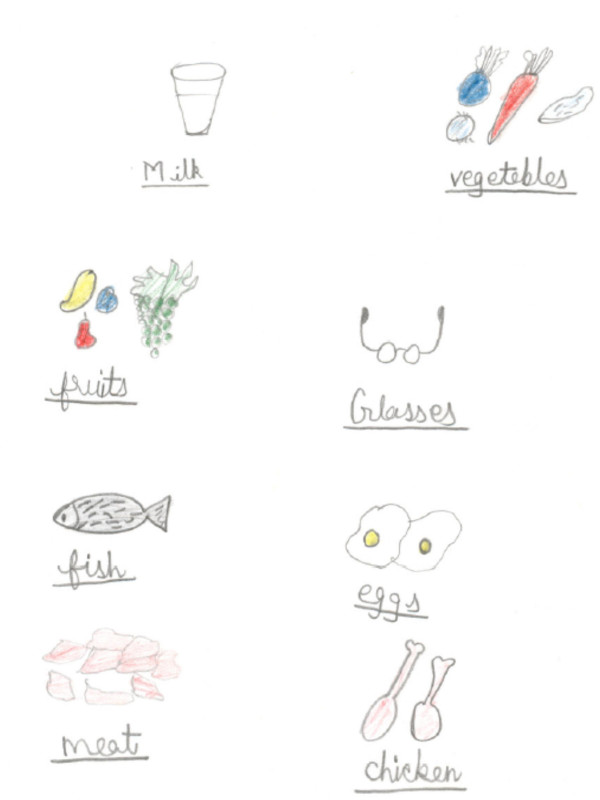 Milk
vegetebles
fruits
Glasses
fish
eggs
meat
chicken